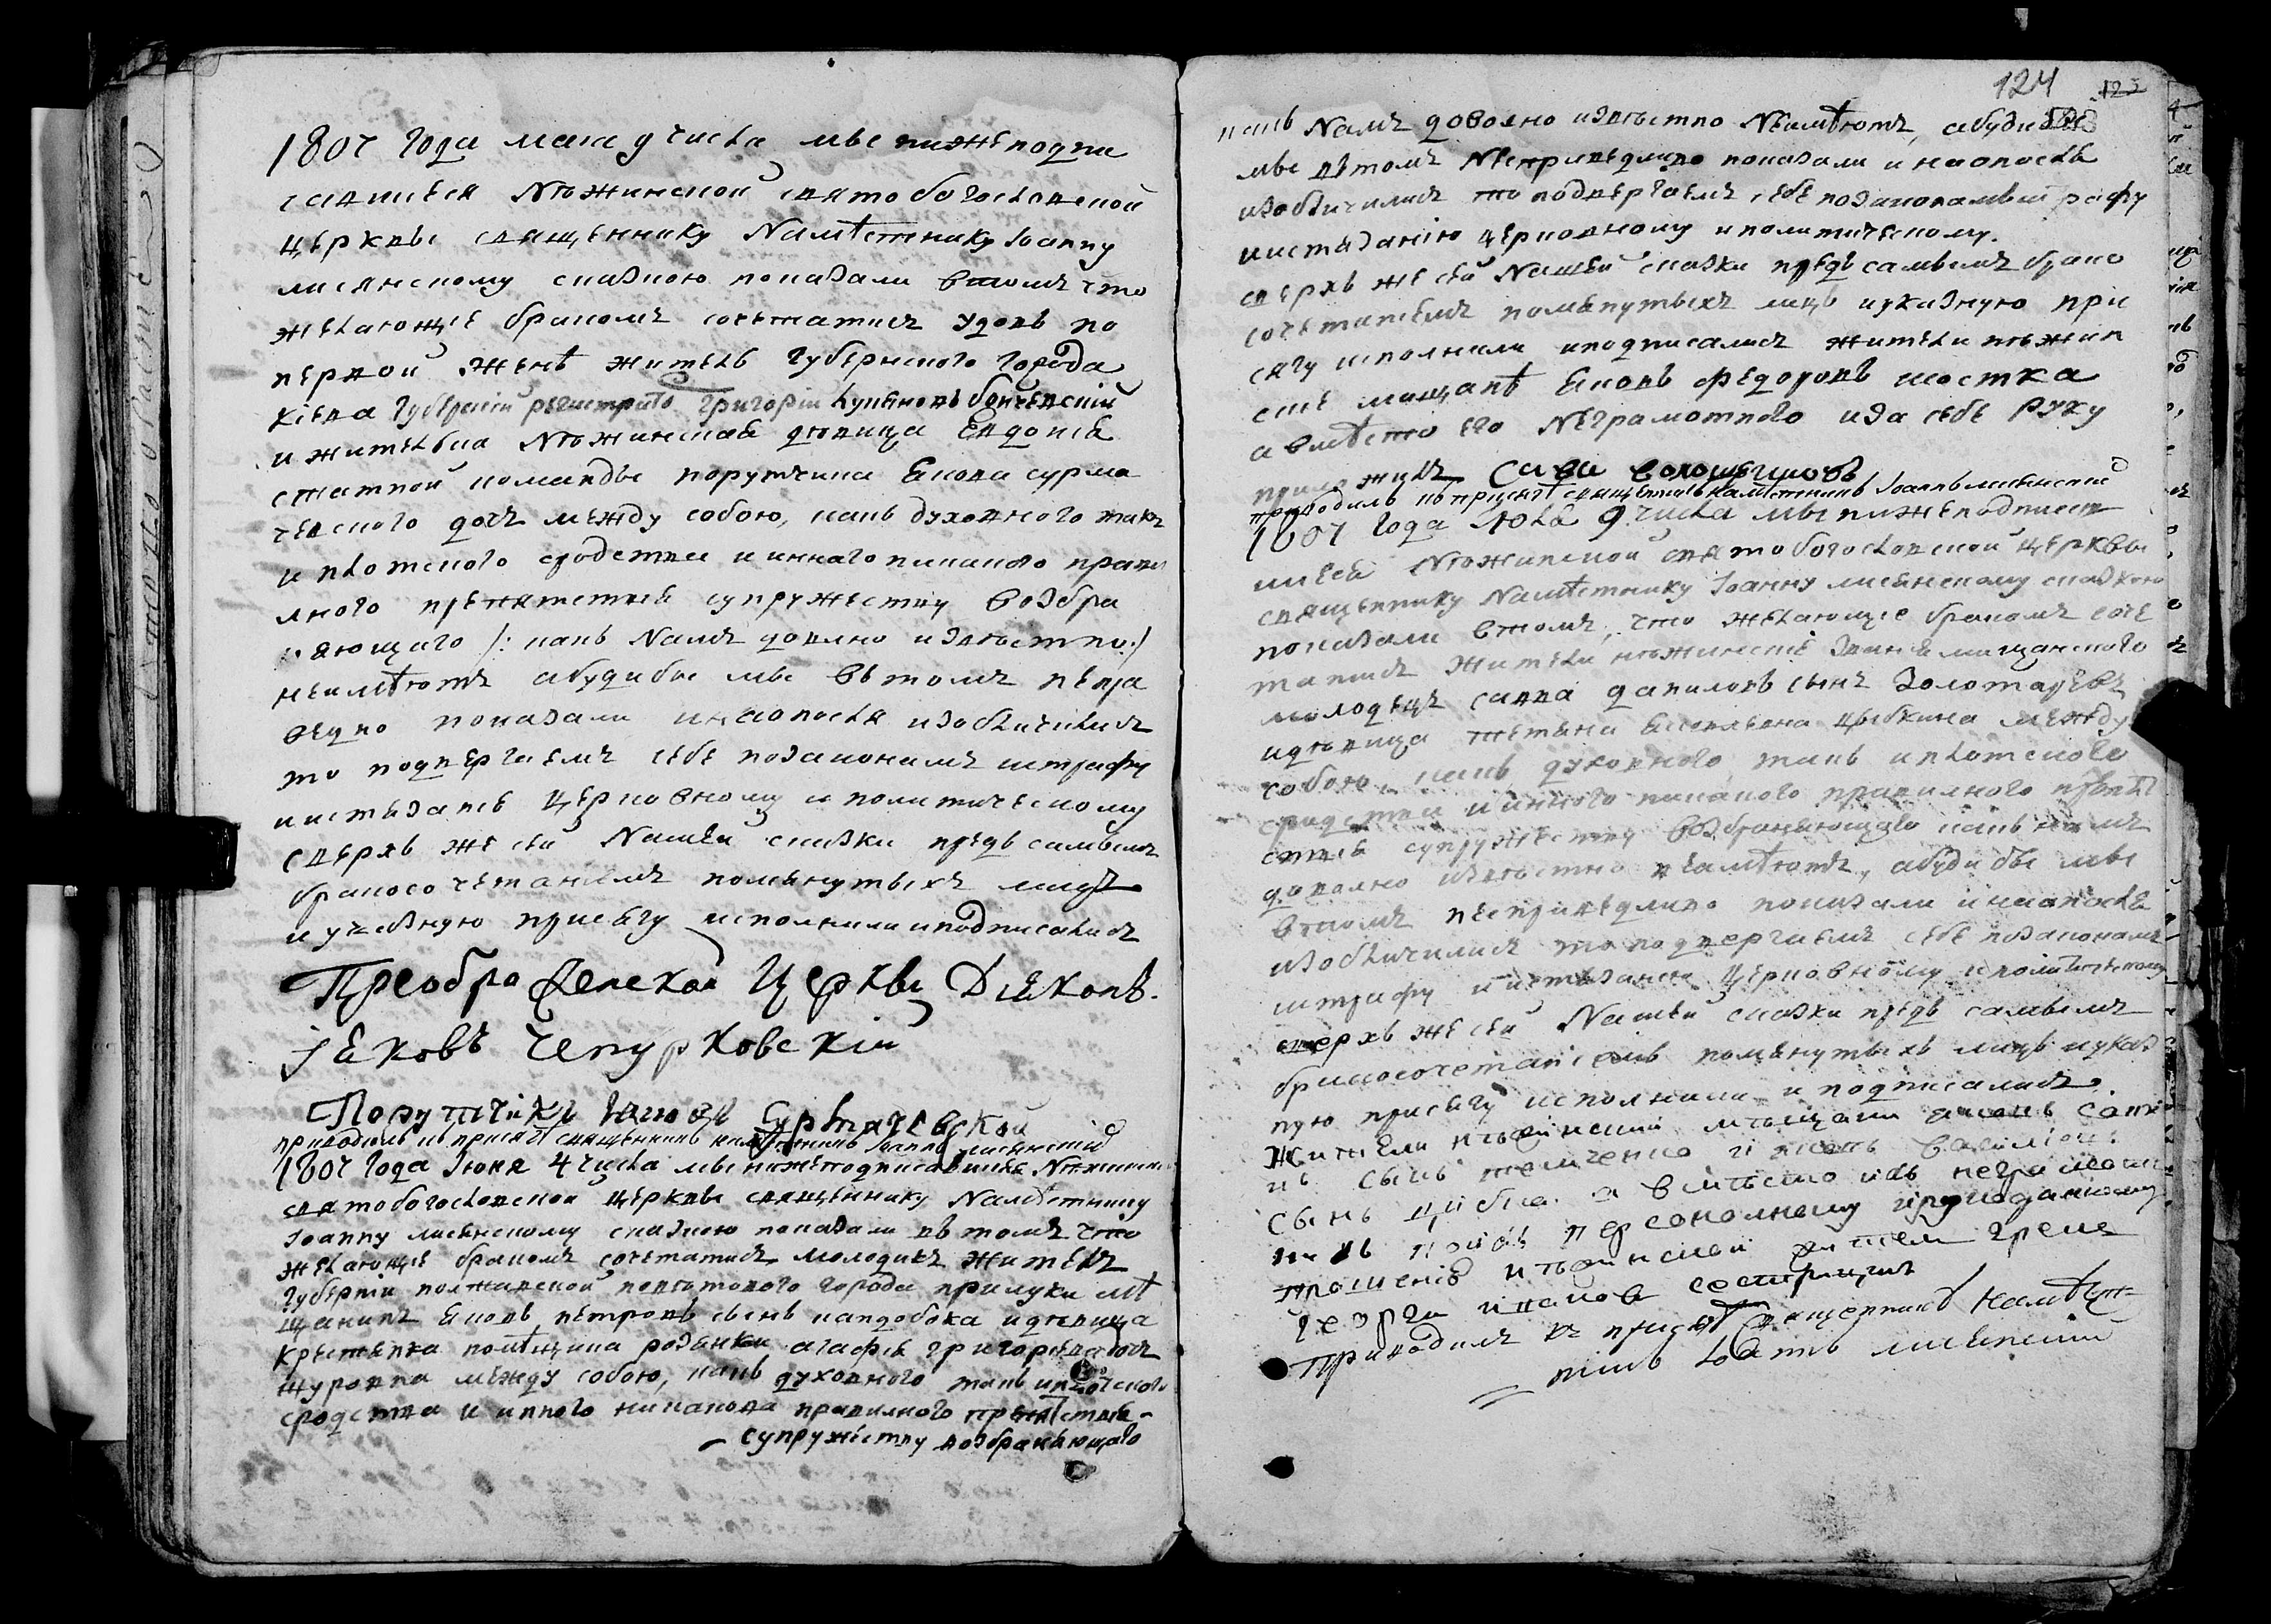 1807 года мая 9 числа мы нижеподпи
савшиеся Нѣжинской святобогословской
церквы священнику Намѣстнику Іоанну
лисянскому сказкою показали втомъ что
желающіе бракомъ сочетатись удовъ по
первой женѣ житель губернского города
Кіева губернскій регистраторъ григорій
и жителька Нѣжинская дѣвица Евдокія
статной команды порутчика Якова сурма
чевского дочъ между собою, какъ духовного такъ
и плотского сродства и инного никакого прави
лного препятствія супружеству возбра
няющаго /: какъ Намъ доволно извѣстно :/
неимѣютъ абудибы мы въ томъ непра
ведно показали инаопослѣ изобличились
то подвергаемъ себе позаконамъ штрафу
иистязанію церковному и политическому
сверхъ же сей Нашей сказки предъ самымъ
бракосочетаніемъ помянутыхъ лицъ
и указную присягу исполнили иподписались
Преображенской Церквы Діяконъ.
Іяковъ Чепурковскій
Порутчикъ Яковъ Сурмачевской
приводилъ къ присягѣ священникъ намѣстникъ Іоаннъ лисянскій
1807 года Іюня 4 числа мы нижеподписавшиеся Нѣжинской
святобогословской церквы священнику Намѣстнику
Іоанну лисянскому сказкою показали въ томъ что
желающіе бракомъ сочетатись молодикъ житель
губерніи полтавской повѣтового города прилуки мѣ
щанинъ Яковъ петровъ сынъ идѣвица
агафія григоріева дочъ
журовна между собою, какъ духовного такъ иплотского
сродства и инного никакова правилного препятствія
супружеству возбраняющаго
124
какъ Намъ доволно извѣстно Неимѣютъ, абудибы
мы втомъ Несправедливо показали и наопослѣ
изобличились то подвергаемъ себе позаконамъ штрафу
иистязанію церковному иполитическому.
сверхъ же сей Нашей сказки предъ самымъ брако
сочетаніемъ помянутыхъ лицъ иуказную при
сягу исполнили иподписались жители нѣжин
скіе мищанѣ Яковъ федоровъ шостка
авмѣсто его Неграмотного иза себе руку
приложилъ Сава
приводилъ къ присягѣ священникъ намѣстникъ Іоаннъ лисянскій
1807 года Іюля 9 числа мы нижеподписав
шиеся Нѣжинской святобогословской церквы
священнику Намѣстнику Іоанну лисянскому сказкою
показали втомъ, что желающіе бракомъ соче
татись жители нѣжинскіе званія мищанского
молодецъ савва даниловъ сынъ Золотарѣвъ
идѣвица между
собою, какъ духовного такъ иплотского
сродства иинного никакого правилного препят
ствія супружеству возбраняющаго какъ намъ
доволно извѣстно неимѣютъ, абудибы мы
втомъ несправедливо показали инаопослѣ
изобличились то подвергаемъ себе позаконамъ
штрафу иистязанію церковному иполитическому
сверхъ же сей Нашей сказки предъ самымъ
бракосочетаніемъ помянутыхъ лицъ иуказ
ную присягу исполнили и подписались.
жители нѣжинскіи мѣщани
сынъ
сынъ а вмѣсто ихъ неграмот
персоналному
прошенію нѣжинской житель грекъ
георги ивановъ
Приводилъ къ присягѣ священникъ Намѣст
никъ Іоаннъ лисянскій